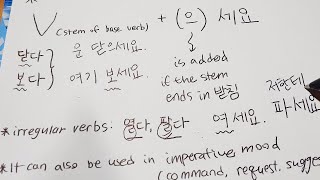 V (stem of base verb) + (으) 세요
닫다 문 닫으세요. is added
보다 여기 보세요. if the stem
ends in 받침
저한테
*irregular verbs: 열다, 팔다 여세요. 파세요
*It can also be used in imperative mood
(command, request, sugges